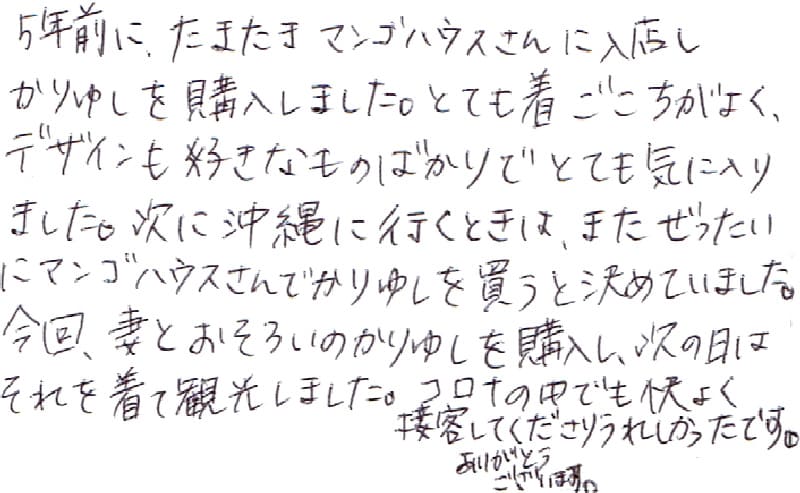 5年前に、たまたま マンゴハウスさんに入店し
かりゆしを購入しました。とても着ごこちがよく、
デザインも好きなものばかりでとても気に入り
ました。次に沖縄に行くときは、またぜったい
にマンゴハウスさんでかりゆしを買うと決めていました。
今回、妻とおそろいのかりゆしを購入し、次の日は
それを着て観光しました。コロナの中でも快よく
接客してくださりうれしかったです。
ありがとう
ございます。